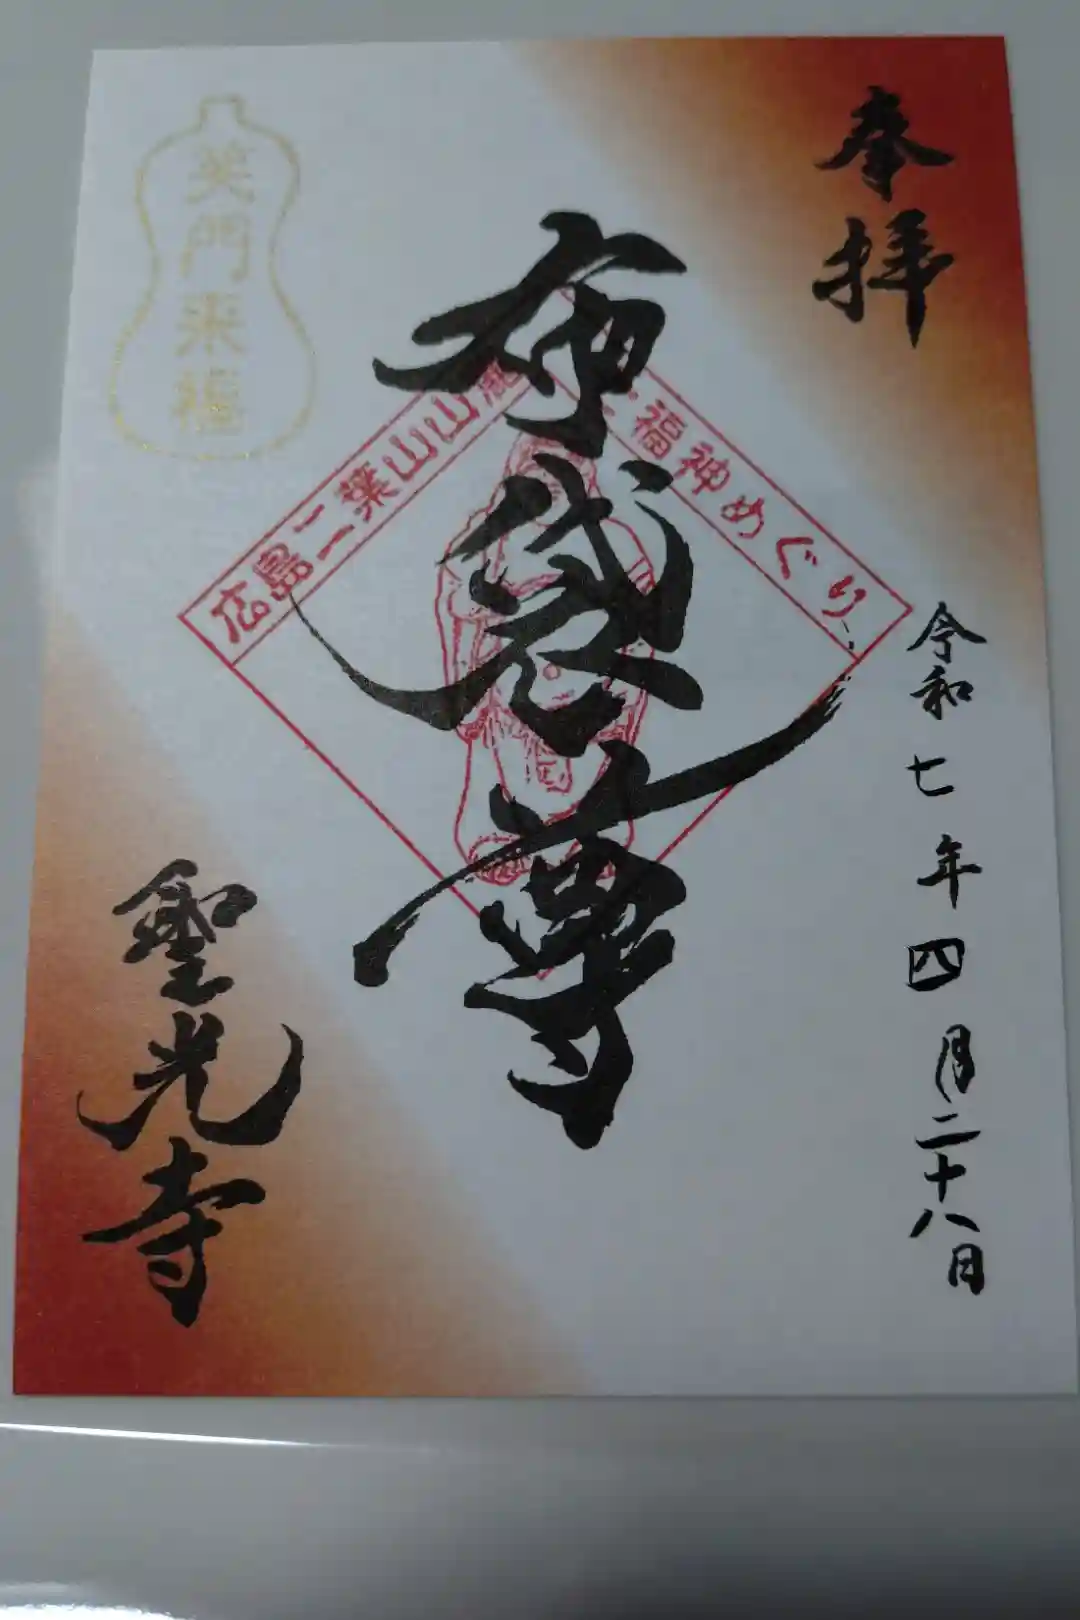 奉拝
令和七年四月二十八日
布袋尊
広島二葉山山麓
福神めぐり
笑門来福
聖光寺